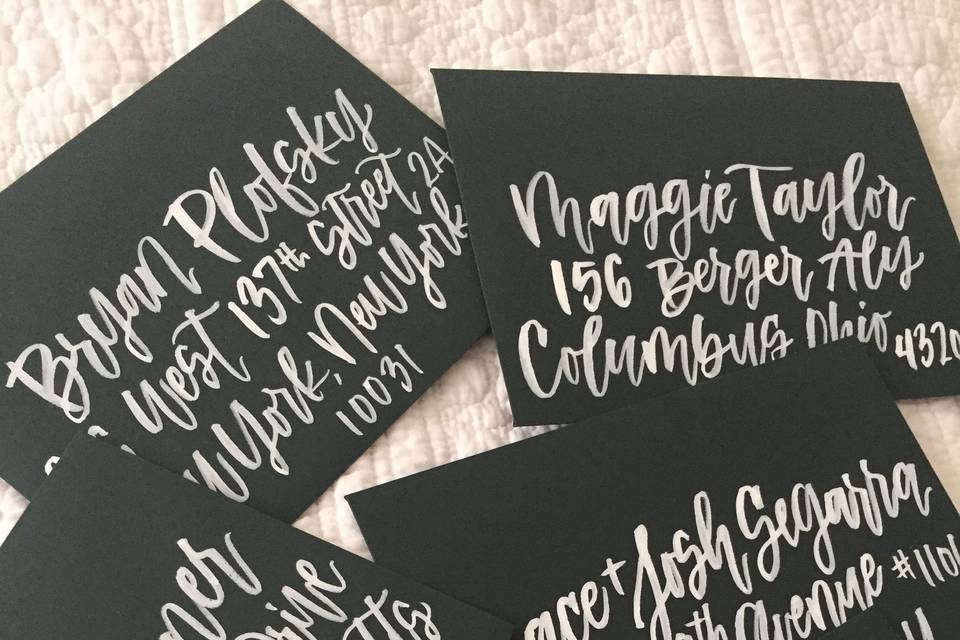 Bryan Plofsky
West 137th Street 2A
York, New York
10031
Maggie Taylor
156 Berger Aly
Columbus Ohio 4320
ace + Josh Segarra
th Avenue #1101
ner
Drive
tts